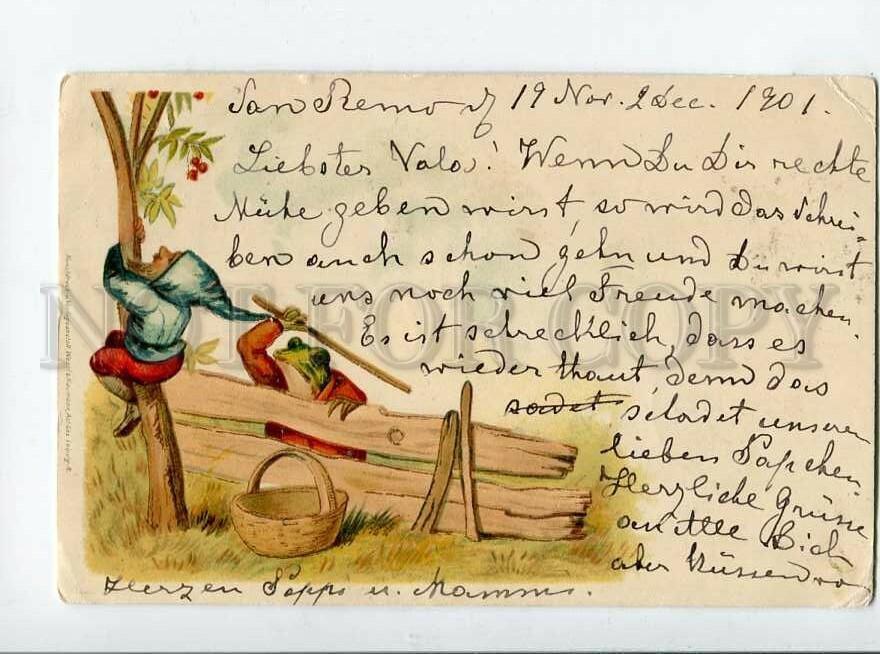 San Remo d 19 Nov. 2 Dec. 1901.
Liebster Valo! Wenn Du Dir rechte
Mühe geben wirst, so wird das Schrei=
ben auch schon gehn und Du wirst
uns noch viel Freude machen.
Es ist schrecklich, dass es
wieder thaut, denn das
schadet unseren
lieben Papchen
Herzliche Grüsse
an Alle Dich
aber küssen von
Herzen Pappi u. Mamma.
NOT FOR COPY